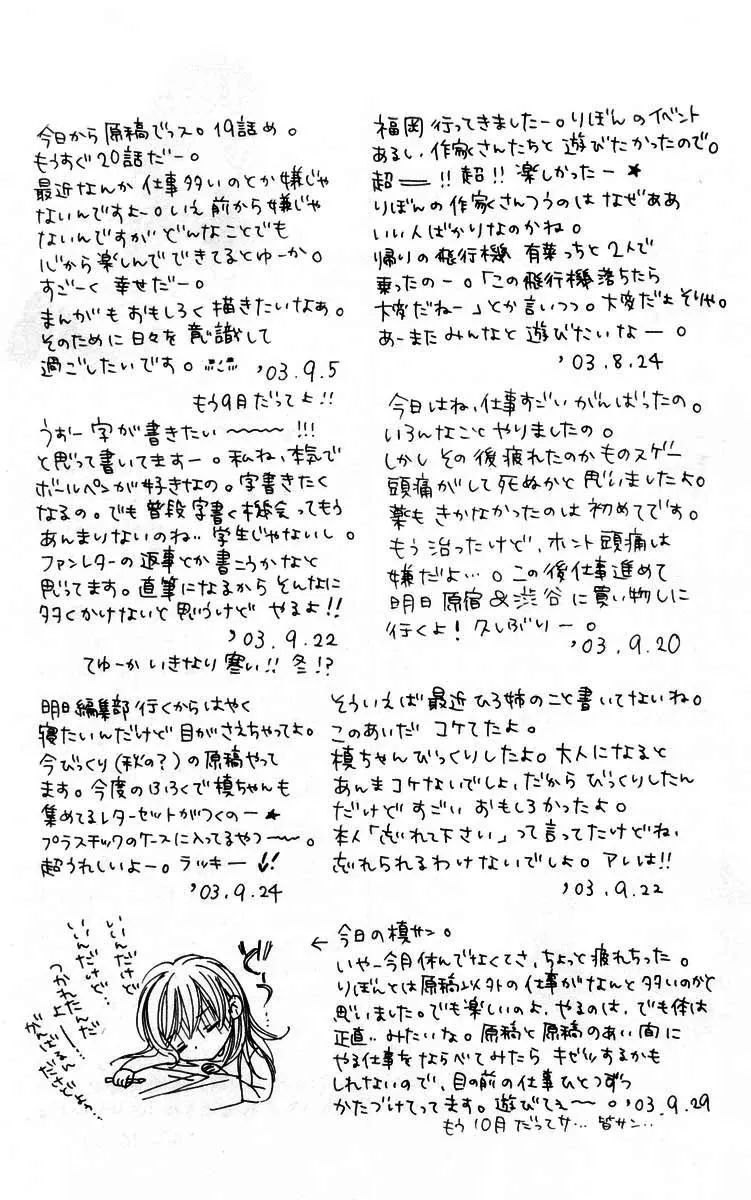 福岡行ってきましたー。りぼんのイベント
あるし、作家さんたちと遊びたかったので。
超——!!超!!楽しかったー★
りぼんの作家さんつうのはなぜああ
いい人ばかりなのかね。
帰りの飛行機 有葉っちと2人で
乗ったのー。「この飛行機落ちたら
大変だねー」とか言いつつ。大変だよそりゃ。
あーまたみんなと遊びたいなー。
'03.8.24
今日から原稿でっス。19話め。
もうすぐ20話だー。
最近なんか仕事多いのとか嫌じゃ
ないんですよー。いえ前から嫌じゃ
ないんですがどんなことでも
心から楽しんでできてるとゆーか。
すごーく幸せだー。
まんがもおもしろく描きたいなぁ。
そのために日々を意識して
過ごしたいです。
'03.9.5
もう9月だってよ!!
今日はね、仕事すごいがんばったの。
いろんなことやりましたの。
しかしその後疲れたのかものスゲー
頭痛がして死ぬかと思いましたよ。
薬もきかなかったのは初めてです。
もう治ったけど、ホント頭痛は
嫌だよ…。この後仕事進めて
明日原宿&渋谷に買い物しに
行くよ!久しぶりー。
'03.9.20
うおー字が書きたい〜〜〜!!!
と思って書いてますー。私ね、本気で
ボールペンが好きなの。字書きたく
なるの。でも普段字書く機会ってもう
あんまりないのね‥学生じゃないし。
ファンレターの返事とか書こうかなと
思ってます。直筆になるからそんなに
多くかけないと思うけど やるよ!!
'03.9.22
てゆーかいきなり寒い!!冬!?
そういえば最近ひろ姉のこと書いてないね。
このあいだ コケてたよ。
槙ちゃんびっくりしたよ。大人になると
あんまコケないでしょ、だからびっくりしたん
だけどすごいおもしろかったよ。
本人「忘れて下さい」って言ってたけどね、
忘れられるわけないでしょ。アレは!!
'03.9.22
明日編集部行くからはやく
寝たいんだけど目がさえちゃってよ。
今びっくり(秋の?)の原稿やって
ます。今度のふろくで槙ちゃんも
集めてるレターセットがつくのー★
プラスチックのケースに入ってるやつ〜〜。
超うれしいよー。ラッキー!!
'03.9.24
←今日の槙サン。
いやー今月休んでなくてさ、ちょっと疲れちった。
りぼんとは原稿以外の仕事がなんと多いのかと
思いました。でも楽しいのよ、やるのは、でも体は
正直‥みたいな。原稿と原稿のあい間に
やる仕事をならべてみたらキゼツするかも
しれないので、目の前の仕事ひとつずつ
かたづけてってます。遊びてぇ〜。
'03.9.29
もう10月だってサ…皆サン‥
いいんだけど
いいんだけど…
つかれたんだよー…
がんばるんだけどよっ…
ど〜っ